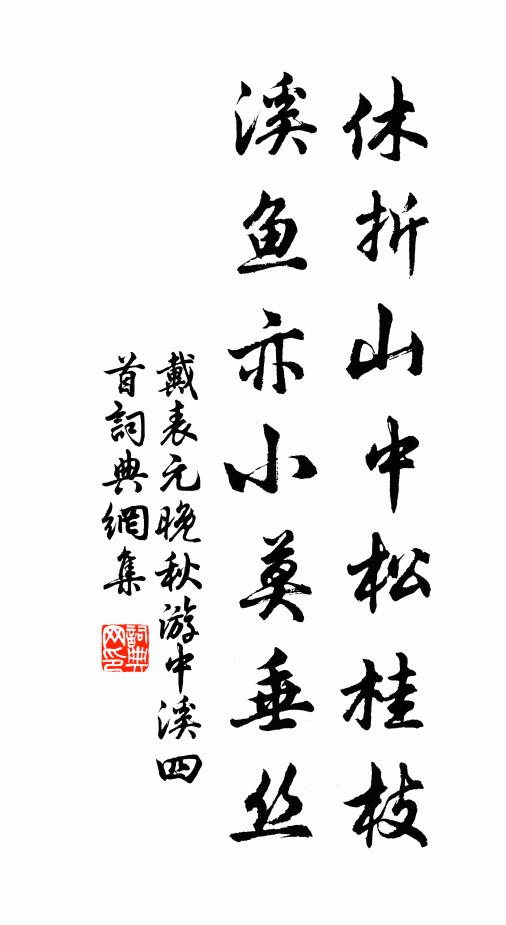 休折山中松桂枝
溪鱼亦小莫垂丝
戴表元晚秋游中溪四
首詞典網集
詞典
网印